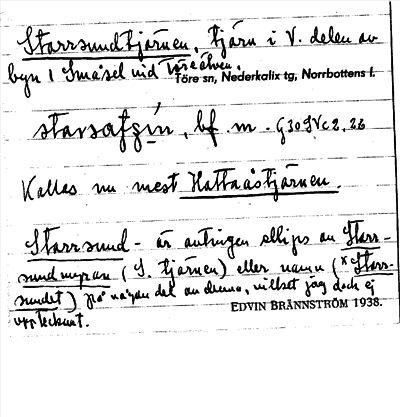 Starrsundtjärnen, tjärn i V. delen av
byn 1 Småsel vid Töreälven.
Töre sn, Nederkalix tg, Norrbottens l.
bf. m. G30SVc2,26
Kallas nu mest Hattaåstjärnen.
Starrsund- är antingen ellips av Starr-
sundmyran (S. tjärnen) eller namn (*Starr-
sundet) på någon del av denna, vilket jag dock ej
upptecknat.
EDVIN BRÄNNSTRÖM 1938.